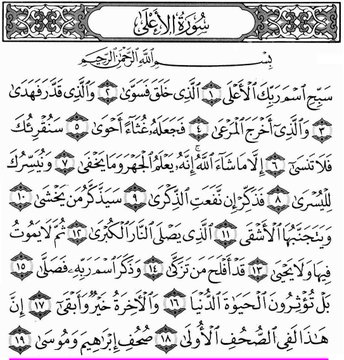 سُورَةُ الْأَعْلَى
بِسْمِ اللَّهِ الرَّحْمَٰنِ الرَّحِيمِ
سَبِّحِ اسْمَ رَبِّكَ الْأَعْلَى ١ الَّذِي خَلَقَ فَسَوَّىٰ ٢ وَالَّذِي قَدَّرَ فَهَدَىٰ
٣ وَالَّذِي أَخْرَجَ الْمَرْعَىٰ ٤ فَجَعَلَهُ غُثَاءً أَحْوَىٰ ٥ سَنُقْرِئُكَ
فَلَا تَنسَىٰ ٦ إِلَّا مَا شَاءَ اللَّهُ ۚ إِنَّهُ يَعْلَمُ الْجَهْرَ وَمَا يَخْفَىٰ ٧ وَنُيَسِّرُكَ
لِلْيُسْرَىٰ ٨ فَذَكِّرْ إِن نَّفَعَتِ الذِّكْرَىٰ ٩ سَيَذَّكَّرُ مَن يَخْشَىٰ ١٠
وَيَتَجَنَّبُهَا الْأَشْقَى ١١ الَّذِي يَصْلَى النَّارَ الْكُبْرَىٰ ١٢ ثُمَّ لَا يَمُوتُ
فِيهَا وَلَا يَحْيَىٰ ١٣ قَدْ أَفْلَحَ مَن تَزَكَّىٰ ١٤ وَذَكَرَ اسْمَ رَبِّهِ فَصَلَّىٰ ١٥
بَلْ تُؤْثِرُونَ الْحَيَوٰةَ الدُّنْيَا ١٦ وَالْآخِرَةُ خَيْرٌ وَأَبْقَىٰ ١٧ إِنَّ
هَٰذَا لَفِي الصُّحُفِ الْأُولَىٰ ١٨ صُحُفِ إِبْرَاهِيمَ وَمُوسَىٰ ١٩